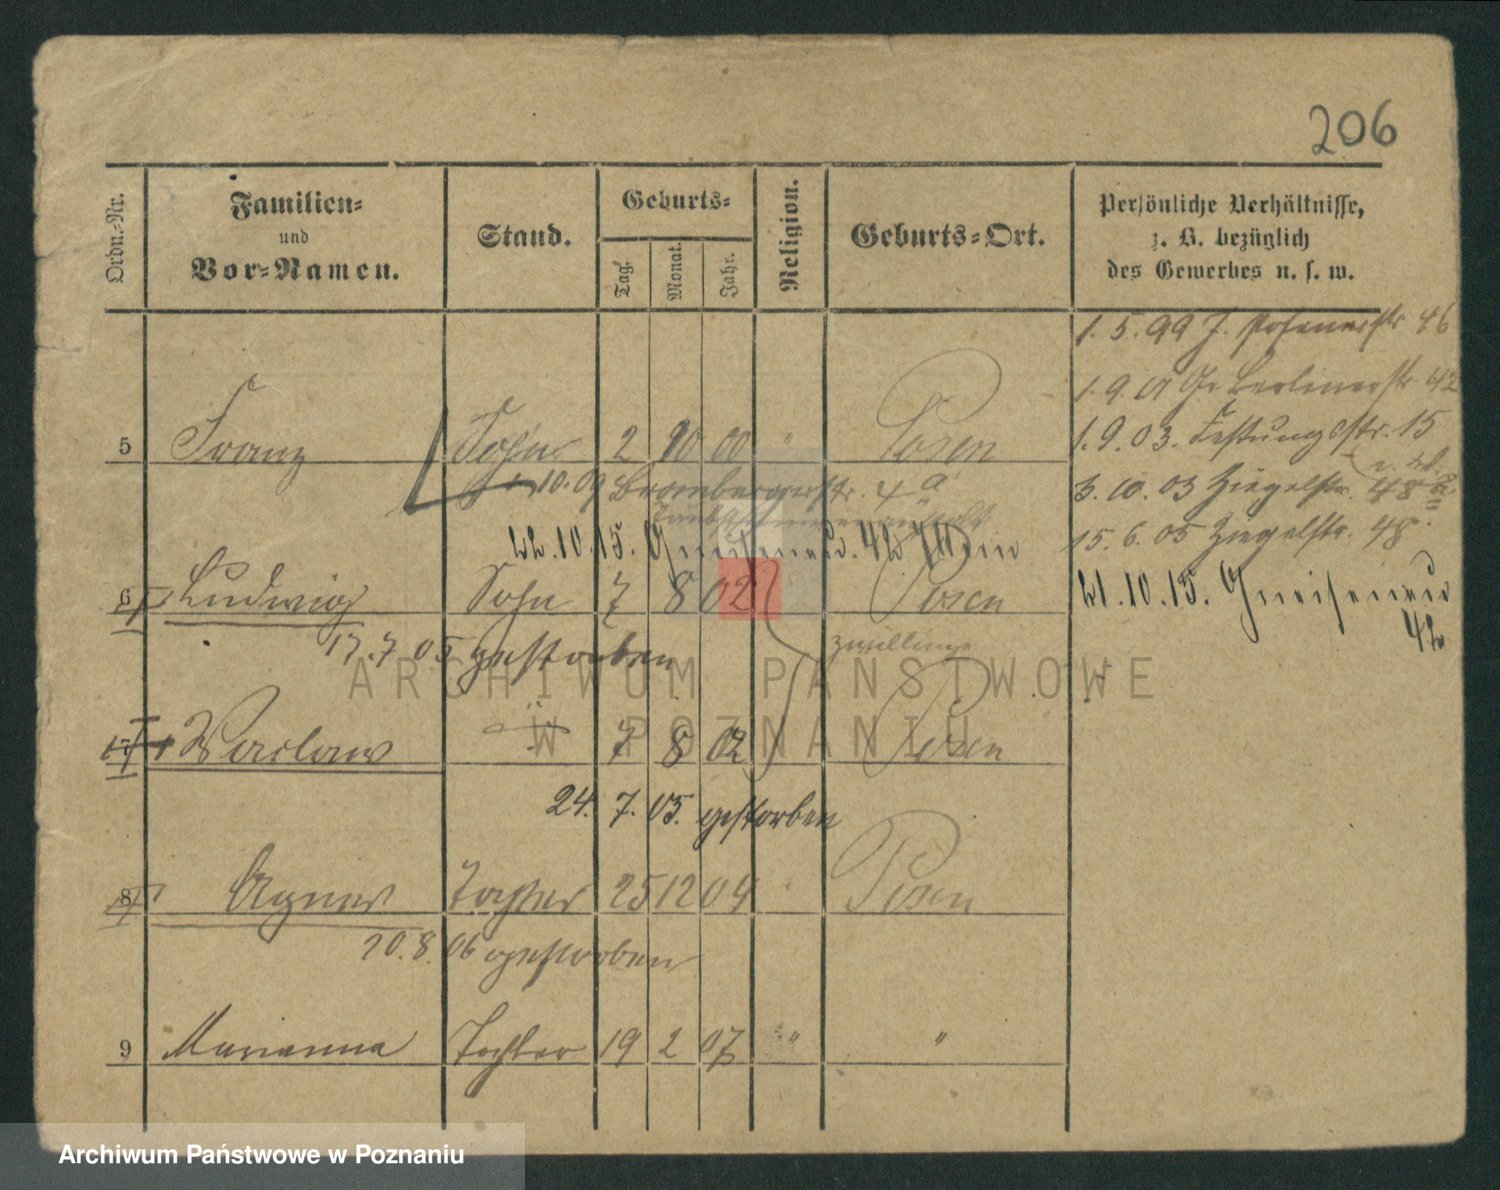 206
Ordn.-Nr.
Familien-
und
Vor-Namen.
Stand.
Geburts-
Tag.
Monat.
Jahr.
Religion.
Geburts-Ort.
Persönliche Verhältnisse,
z. B. bezüglich
des Gewerbes u. s. w.
1. 5. 99 J. Posenerstr 46
1. 9. 01 Gr. Berlinerstr 42
1. 9. 03. Festungsstr. 15
3. 10. 03 Ziegelstr. 48a
15. 6. 05 Ziegelstr. 48.
21. 10. 15. Gneisenau
42
5 Franz Sohn 2 10 00 " Posen
10. 09 Brombergerstr. 4a
22. 10. 15. Gneisenau. 42
6 Ludwig Sohn 7 8 02 Posen
17. 7. 05 gestorben
Zwillinge
7 Waclaw " 7 8 02 Posen
24. 7. 05. gestorben
8 Agnes Tochter 25 12 04 Posen
20. 8. 06 gestorben
9 Marianna Tochter 19 2 07 " "
ARCHIWUM PAŃSTWOWE
W POZNANIU
Archiwum Państwowe w Poznaniu